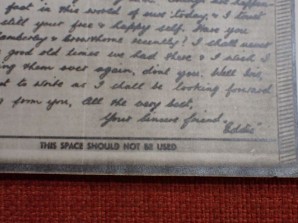 fast in this world of ours today, & I trust
still your free & happy self. Have you
& hawthorne recently? I shall never
good old times we had there & I wish I
ing them over again, don't you. Well bird,
t to write as I shall be looking forward
g from you, All the very best,
Your sincere friend,
"Eddie"
THIS SPACE SHOULD NOT BE USED